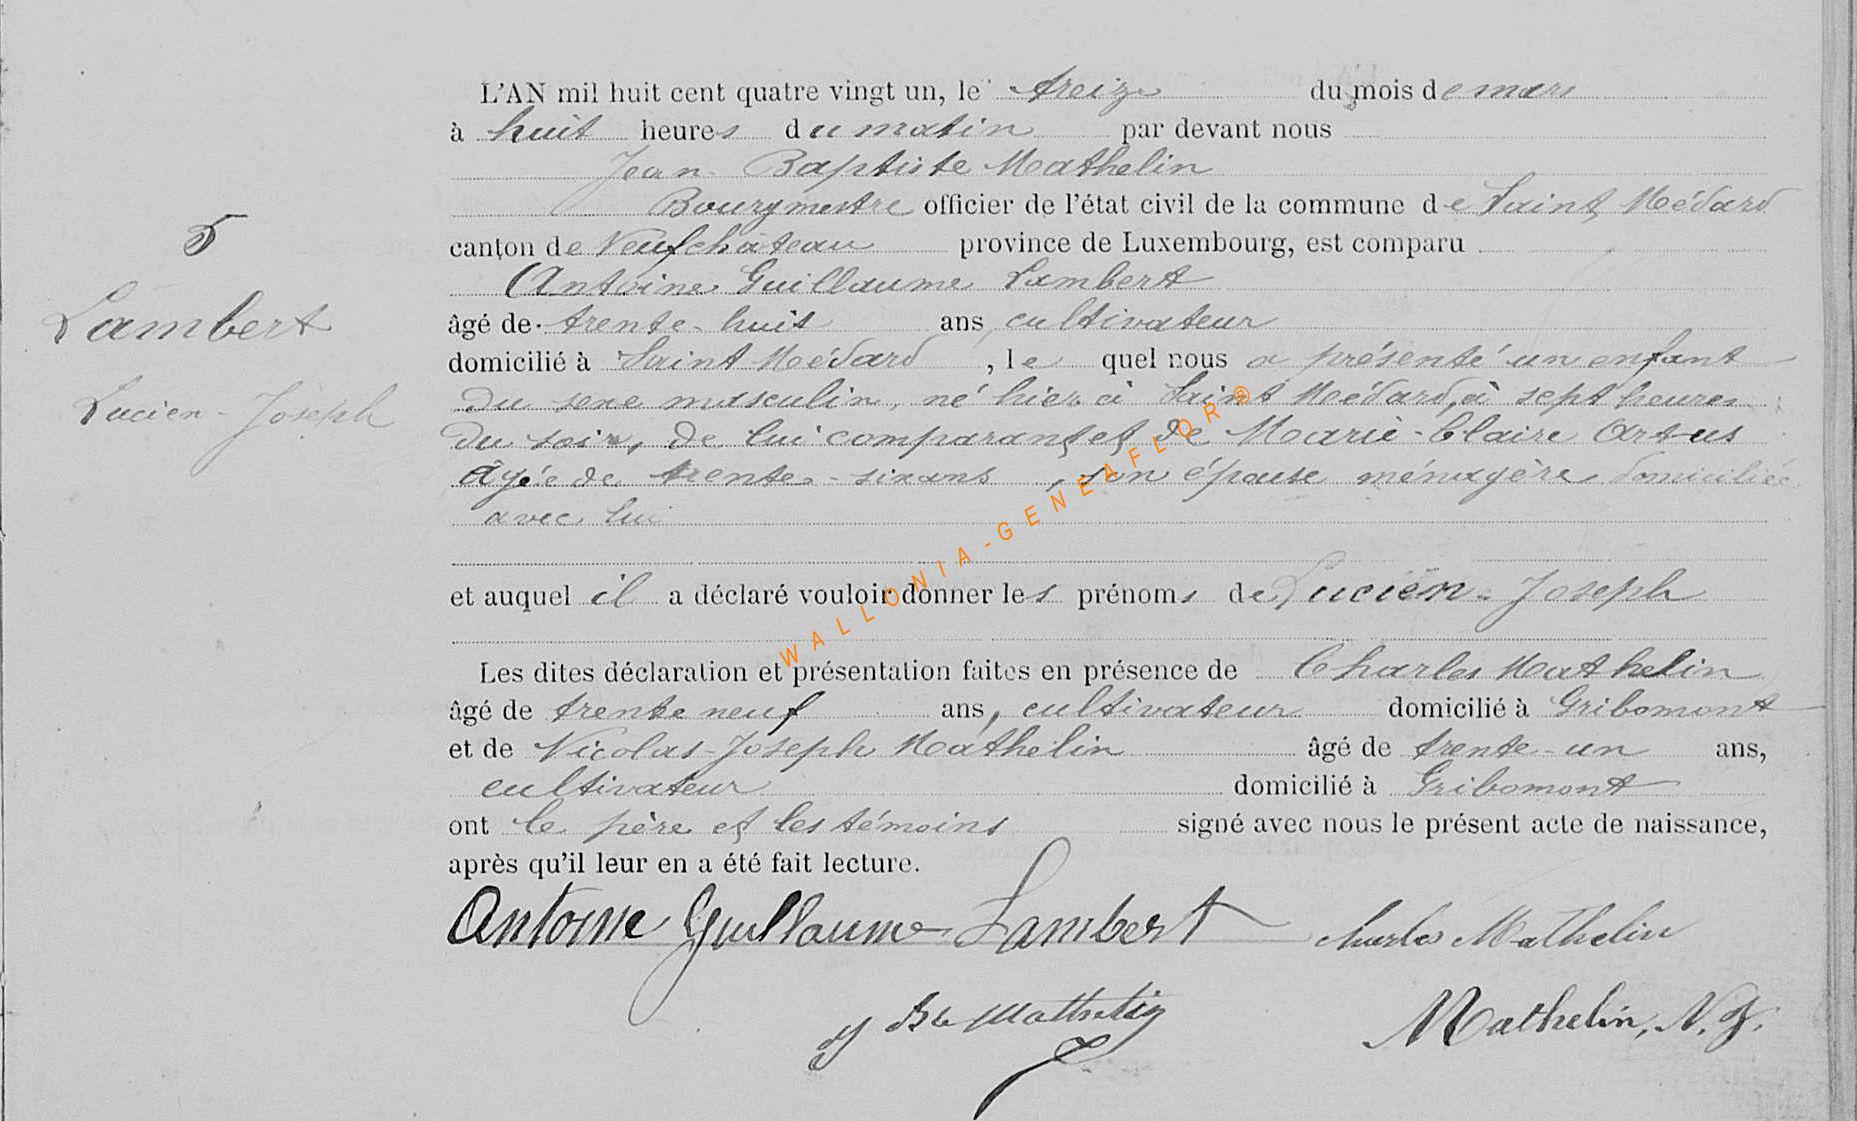 L'AN mil huit cent quatre vingt un, le treize du mois de mars
à huit heures du matin par devant nous
Jean Baptiste Mathelin
Bourgmestre officier de l'état civil de la commune de Saint Médard
canton de Neufchâteau province de Luxembourg, est comparu
Antoine Guillaume Lambert
âgé de trente-huit ans cultivateur
domicilié à Saint Médard, le quel nous a présenté un enfant
du sexe masculin, né hier à Saint Médard, à sept heures
du soir, de lui comparant et de Marie-Claire Artus
âgée de trente-six ans, son épouse ménagère domiciliée
avec lui
et auquel il a déclaré vouloir donner les prénoms de Lucien-Joseph
Les dites déclaration et présentation faites en présence de Charles Mathelin
âgé de trente neuf ans, cultivateur domicilié à Gribomont
et de Nicolas-Joseph Mathelin âgé de trente-un ans,
cultivateur domicilié à Gribomont
ont le père et les témoins signé avec nous le présent acte de naissance,
après qu'il leur en a été fait lecture.
Antoine Guillaume Lambert Charles Mathelin
J Bte Mathelin Mathelin, N. J.
5
Lambert
Lucien-Joseph
WALLONIA-GENEAFLOR®